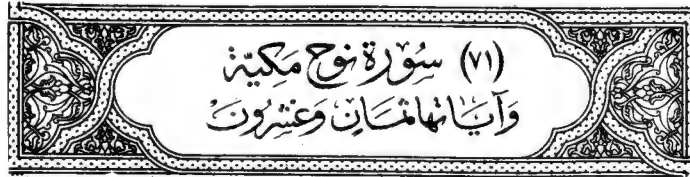 (٧١) سُورَة نوح مَكيَّة
وَآيَاتهَا ثمَانٍ وَعشرُونَ